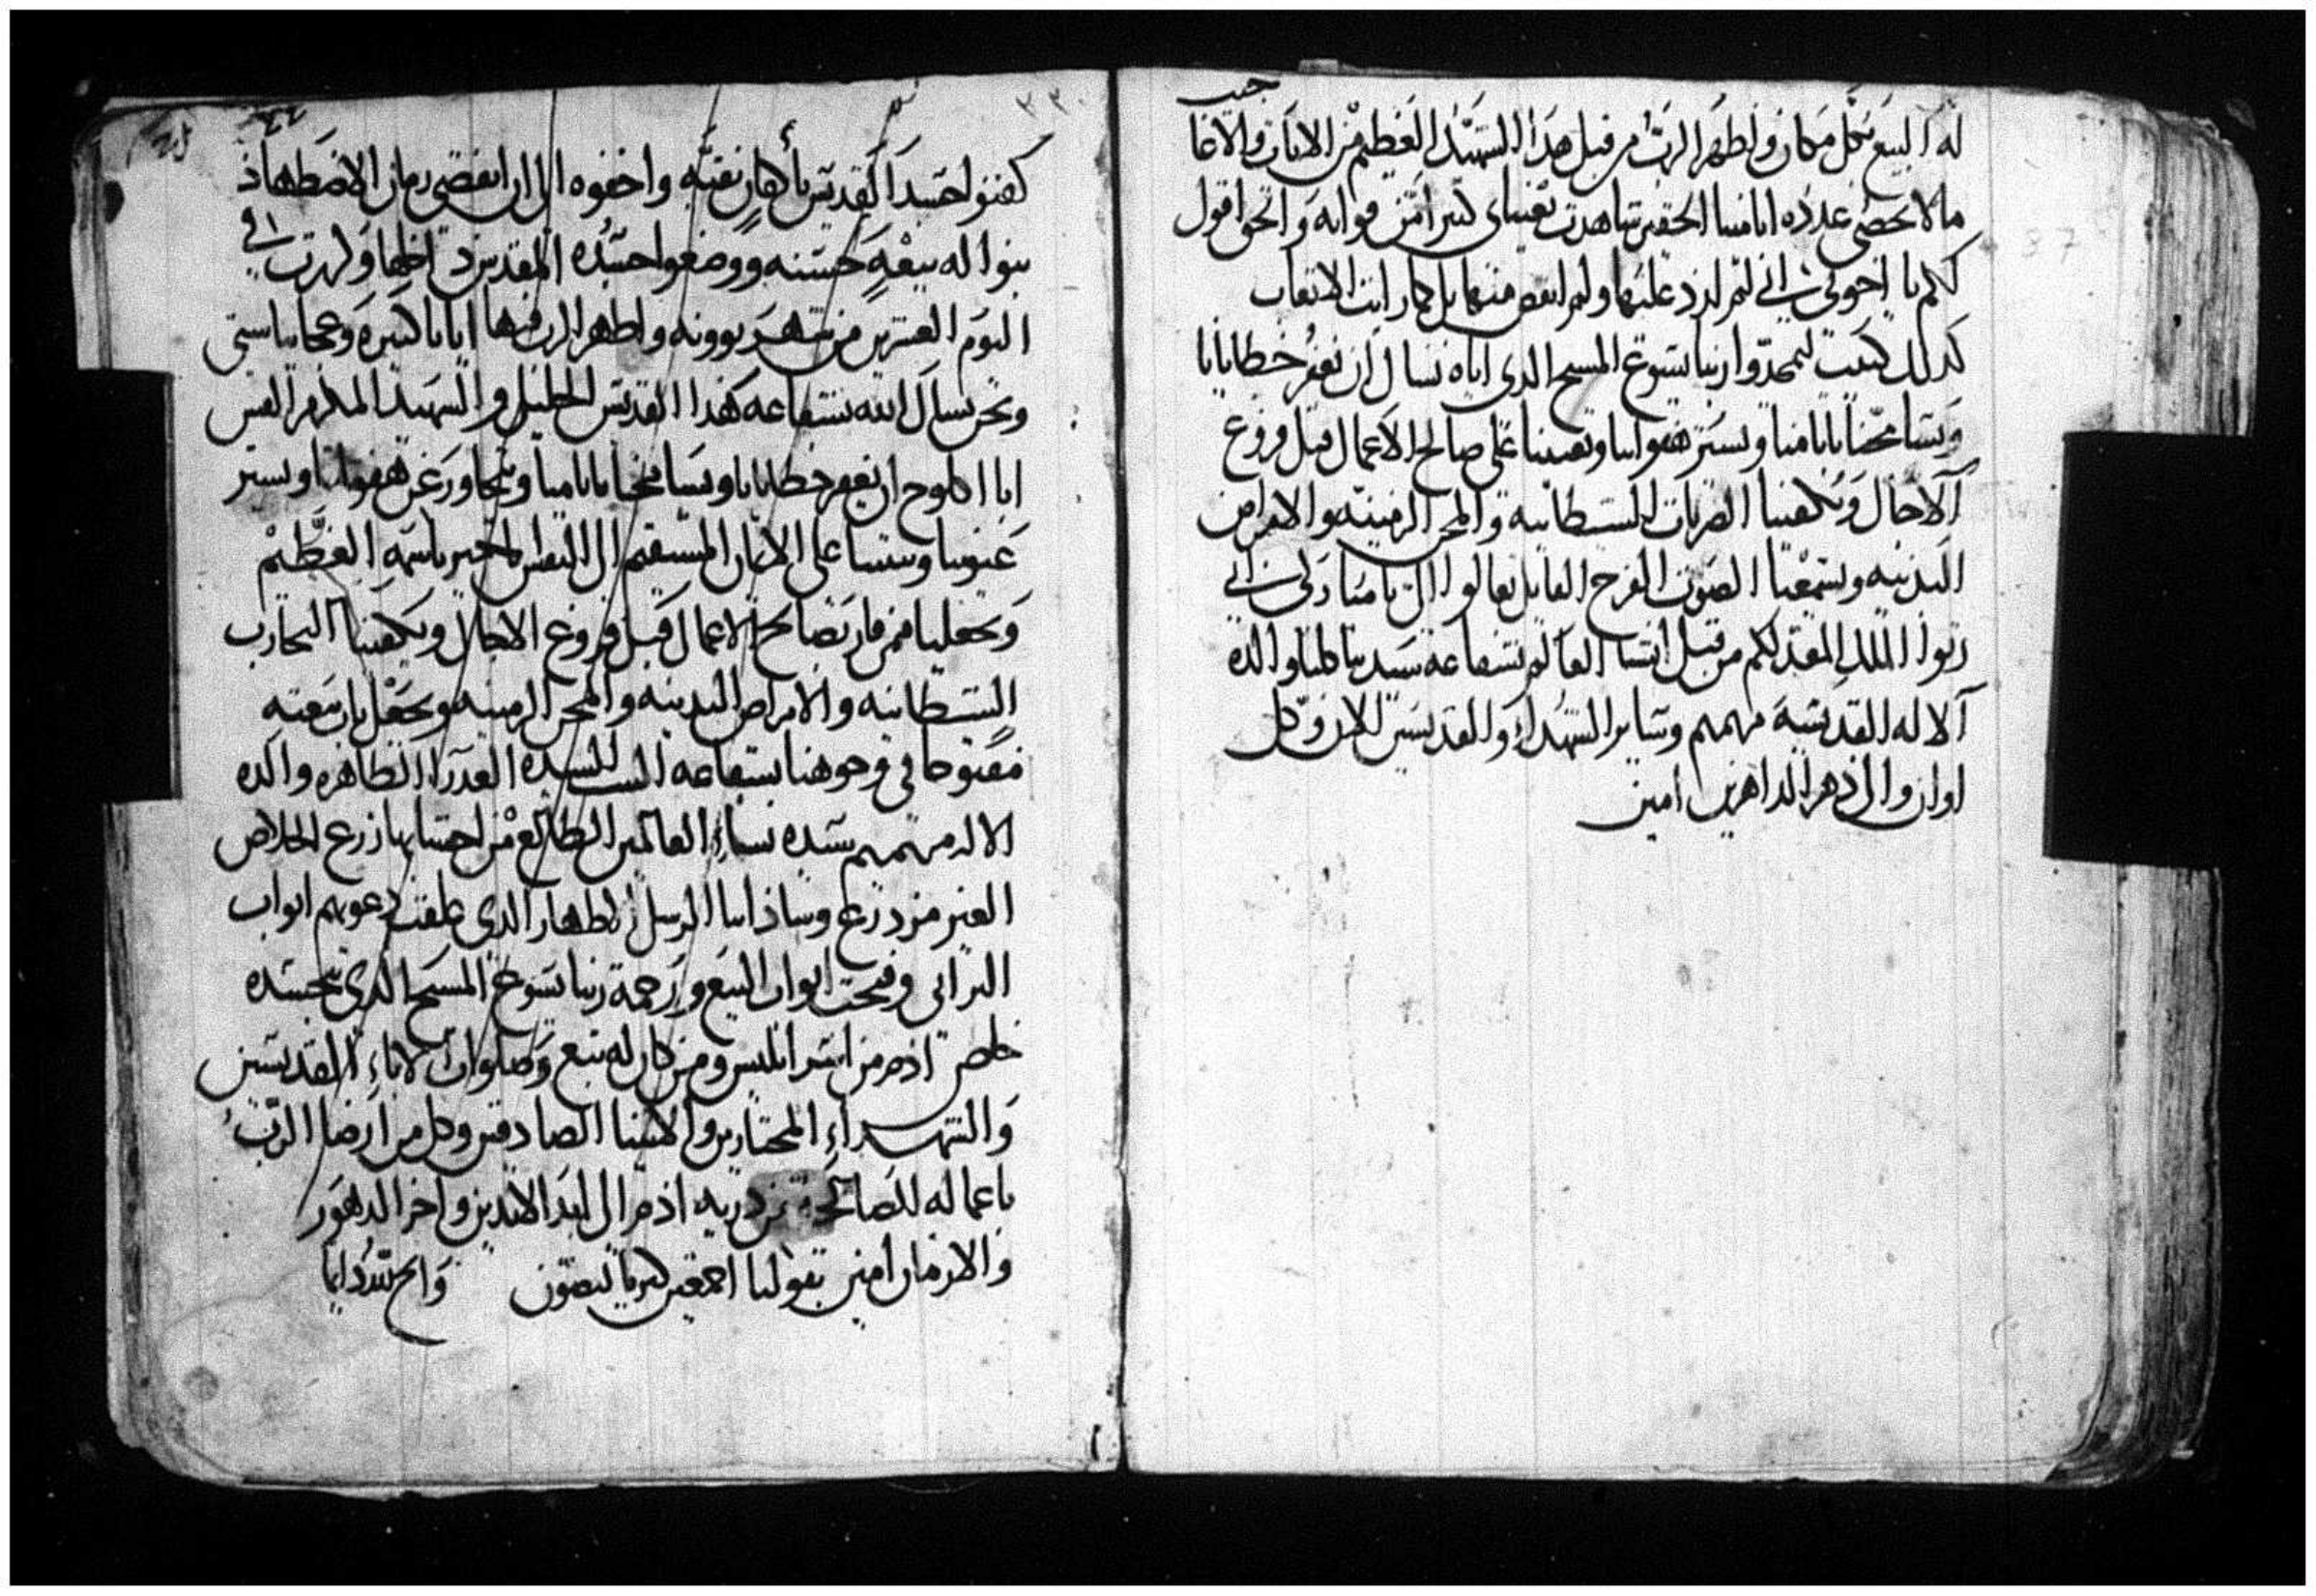 له البيع بكل مكان واظهر الرب من قبل هذا الشهيد العظيم من الايات والاعا
جيب
ما لا يحصى عدده انا مينا الحقير شاهدت بعيناى كثيرا من قواته والحق اقول
لكم يا اخوتى اننى لم ازد عليها ولم انقص منها بل كما رايت الاتعاب
كذلك كتبت ليمجدوا ربنا يسوع المسيح الذى اياه نسال ان يغفر خطايانا
ويسامحنا باثامنا ويستر هفواتنا ويعيننا على صالح الاعمال قبل فروغ
الاجال ويكفينا الضربات الشيطانيه والمحن الزمنيه والامراض
البدنيه ويسمعنا الصوت الفرح القايل تعالوا الى يا مباركى ابى
رثوا الملك المعد لكم من قبل انشا العالم بشفاعة سيدتنا كلنا والدة
الاله القديسه مرتمريم وساير الشهداء والقديسين الان وكل
اوان والى دهر الداهرين امين
٤٤
كفنوا جسد القديس باكفان نقيه واخفوه الى ان انقضى زمان الاضطهاد
بنوا له بيعه حسنه ووضعوا جسده المقدس داخلها وكرزت فى
اليوم العشرين من شهر بوونه واظهر الرب فيها ايات كثيره وعجايب شتى
ونحن نسال الله بشفاعة هذا القديس الجليل والشهيد المكرم القس
ابا اكلوج ان يغفر خطايانا ويسامحنا باثامنا ويتجاوز عن هفواتنا ويستر
عيوبنا ويثبتنا على الايمان المستقيم الى النفس الاخير باسمه العظيم
ويجعلنا ممن فاز بصالح الاعمال قبل فروغ الاجال ويكفينا التجارب
الشيطانيه والامراض البدنيه والمحن الزمنيه ويجعل باب بيعته
مفتوحا فى وجوهنا بشفاعة الست السيده العدرا الطاهره والدة
الاله مرتمريم سيدة نساء العالمين الطالع من احشايها زرع الخلاص
الغير مزدرع وساداتنا الرسل الاطهار الذى غلقت دعوتهم ابواب
البرابى وفتحت ابواب البيع ورحمة ربنا يسوع المسيح الذى بجسده
خلص ادم من اسر ابليس ومن كان له تبع وصلوات الاباء القديسين
والشهداء المختارين والامنا الصادقين وكل من ارضا الرب
باعماله الصالحه من ذرية ادم الى ابد الابدين واخر الدهور
والازمان امين بقولنا اجمعين كيرياليصون والمجد لله دايما